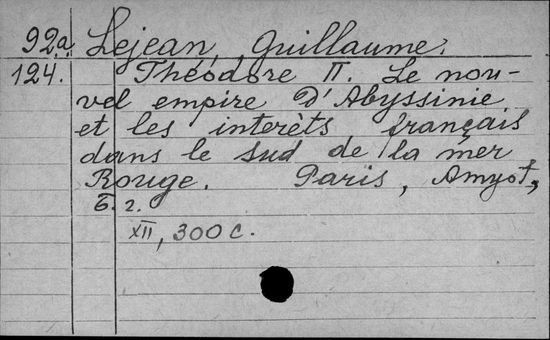 92a Lejean, Guillaume.
124. Théodore II. Le nou-
vel empire d'Abyssinie
et les interèts français
dans le sud de la mer
Rouge. Paris, Amyot,
б. г.
XII, 300 с.